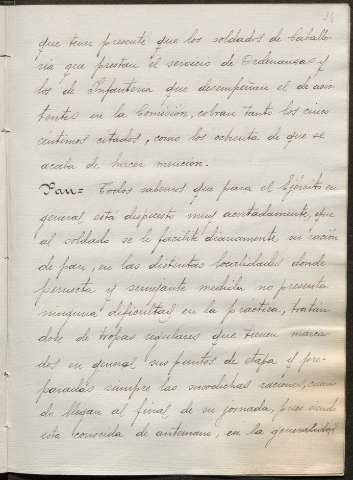 que tener presente que los soldados de Caballe-
ria que prestan el servicio de Ordenanzas y
los de Infanteria que desempeñan el de asis-
tentes en la Comisión, cobran tanto los cinco
centimos citados, como los ochenta de que se
acaba de hacer mención.
Pan= Todos sabemos que para el Ejército en
general está dispuesto muy acertadamente, que
al soldado se le facilite diariamente su ración
de pan, en las distintas localidades donde
pernocta y semejante medida no presenta
ninguna dificultad en la practica, tratan-
dose de tropas regulares que tienen marca-
dos en general sus puntos de etapa y pre-
paradas siempre las susodichas raciones, cuan-
do llegan al final de su jornada, pues siendo
esta conocida de antemano, en la generalidad